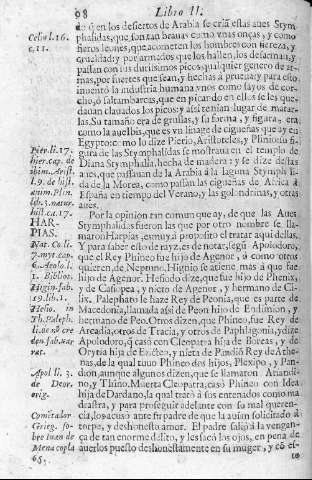 98 Libro II.
de q̃ en los desiertos de Arabia se criã estas aues Stym
Celio l.16.
c.11.
phalidas, que son tan brauas como vnas onças, y como
fieros leones, que acometen los hombres con fiereza, y
crueldad: y por armados que los hallen, los desarman, y
passan con sus durissimos picos qualquier genero de ar-
mas, por fuertes que sean, y hechas à prueua: y para esto
inuentò la industria humana vnos como sayos de cor-
cho, ò saltambarcas, que en picando en ellos se les que-
dauan clauados los picos: y assi tenian lugar de matar-
las. Su tamaño era de grullas, y su forma, y figura, era
como la aue Ibis, que es vn linage de cigueñas que ay en
Pier. li. 17.
hier. cap. de
Egypto: como lo dize Pierio, Aristoteles, y Plinio: su fi-
gura de las Stymphalidas se mostraua en el templo de
Diana Stymphalia, hecha de madera: y se dize destas
l.9. de hist.
anim. Plin.
aues, que passauan de la Arabia à la laguna Stymphali
da de la Morea, como passan las cigueñas de Africa à
lib. 3. natur.
España en tiempo del Verano, y las golondrinas, y otras
hist. ca. 17.
aues.
HAR-
PIAS.
Por la opinion tan comun que ay, de que las Aues
Stymphalidas fueron las que por otro nombre se lla-
maron Harpias, es muy à proposito el tratar aqui dellas.
Nat. Co. li.
7. myt. cap.
Y para saber esto de rayz, es de notar, segũ Apolodoro,
que el Rey Phineo fue hijo de Agenor, ò como otros
quieren, de Neptuno. Higinio se atiene mas à que fue
1. Bibliot.
hijo de Agenor. Hesiodo dize, que fue hijo de Phenix,
Higin. fab.
19. lib. 1.
y de Casiopea, y nieto de Agenor, y hermano de Ci-
lix. Palephato le haze Rey de Peonia, que es parte de
Hesio. in
Macedonia, llamala assi de Peon hijo de Endimion, y
Th. Paleph.
hermano de Peo. Otros dizen, que Phineo, fue Rey de
Arcadia, otros de Tracia, y otros de Paphlagonia, y dize
Apolodoro, q̃ casò con Cleopatra hija de Boreas, y de
Orytia hija de Ericteo, y nieta de Pandiõ Rey de Athe-
nas, de la qual tuuo Phineo dos hijos, Plexipo, y Pan-
Apol. li. 3.
de Deor.
orig.
dion, aunque algunos dizen, que se llamaron
no, y Thino. Muerta Cleopatra, casò Phineo con Idea
hija de Dardano, la qual tratò à sus entenados como ma
drastra, y para proseguir adelante con su mal queren-
Comẽtador
cia, los acusò ante su padre de que la auian solicitado à
Grieg. so-
torpe, y deshonesto amor. El padre saliò à la vengan-
bre Iuan de
ça de tan enorme delito, y les sacò los ojos, en pena de
Mena copla
auerlos puesto deshonestamente en su muger, y co es-
65.
to